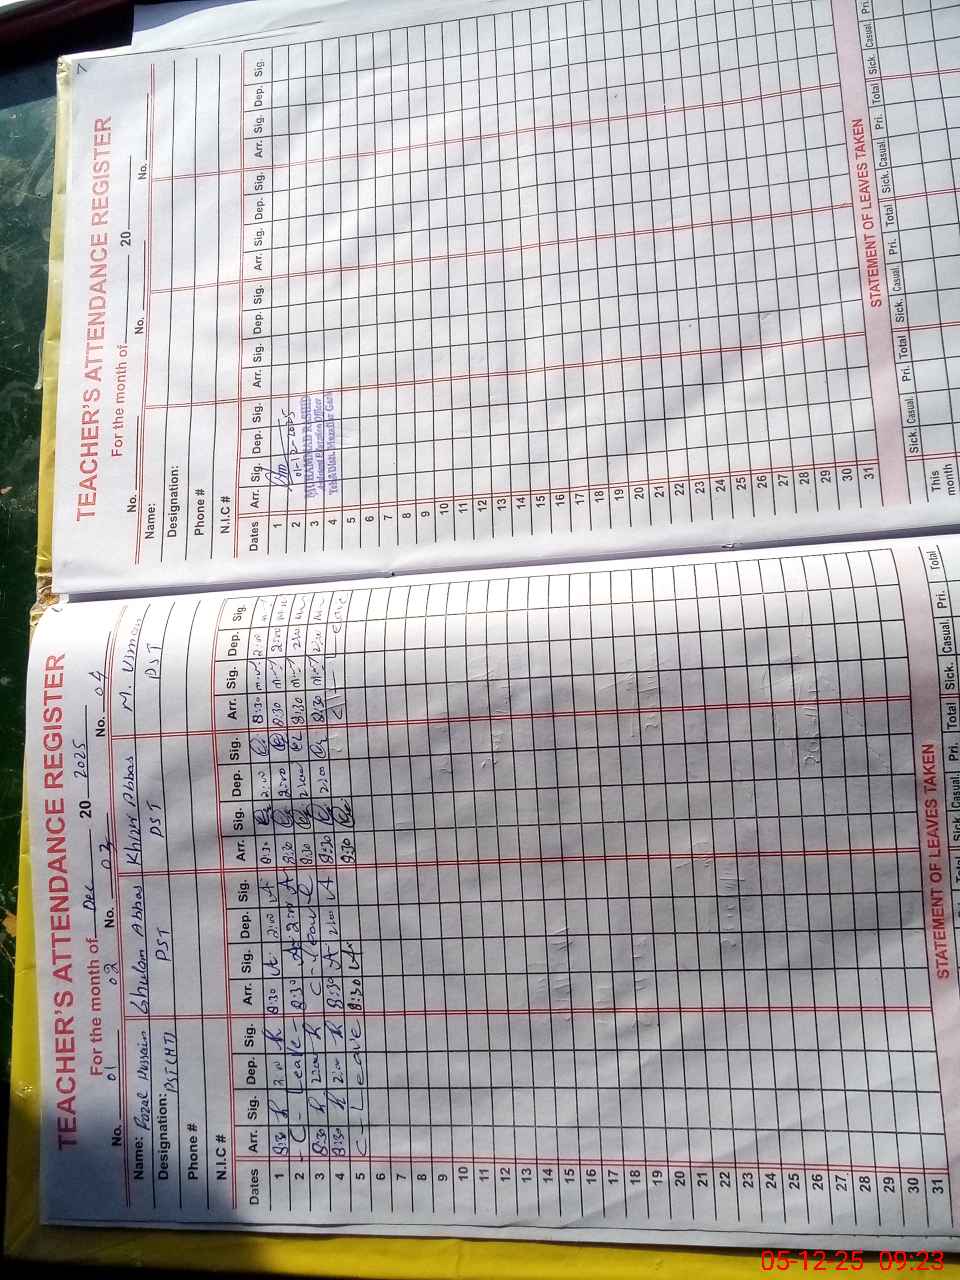 TEACHER'S ATTENDANCE REGISTER
For the month of Dec 20 2025
No. 01 02 No. 03 No. 04
Name: Fazal Hussain Ghulam Abbas Khizar Abbas M. Usman
Designation: PST(HT) PST PST PST
Phone #
N.I.C #
Dates Arr. Sig. Dep. Sig. Arr. Sig. Dep. Sig. Arr. Sig. Dep. Sig. Arr. Sig. Dep. Sig.
1 8:30 2:00 8:30 2:00 8:30 2:00 8:30 2:00
2 - C - Leave - 8:30 2:00 8:30 2:00 8:30 2:00
3 8:30 2:00 C - Leave 8:30 2:00 8:30 2:00
4 8:30 2:00 8:30 2:00 8:30 2:00 8:30 2:00
5 C - Leave 8:30 8:30 C - Leave
6
7
8
9
10
11
12
13
14
15
16
17
18
19
20
21
22
23
24
25
26
27
28
29
30
31
STATEMENT OF LEAVES TAKEN
Total Sick. Casual. Pri. Total
7
TEACHER'S ATTENDANCE REGISTER
For the month of 20
No. No. No.
Name:
Designation:
Phone #
N.I.C #
Dates Arr. Sig. Dep. Sig. Arr. Sig. Dep. Sig. Arr. Sig. Dep. Sig. Arr. Sig. Dep. Sig.
1
2 01-12-2025
3 MUHAMMAD RASHID
4
5
6
7
8
9
10
11
12
13
14
15
16
17
18
19
20
21
22
23
24
25
26
27
28
29
30
31
STATEMENT OF LEAVES TAKEN
Sick. Casual. Pri. Total Sick. Casual. Pri. Total Sick. Casual. Pri. Total Sick. Casual. Pri.
This month
05-12-25 09:23